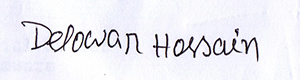 Delowar Hossain